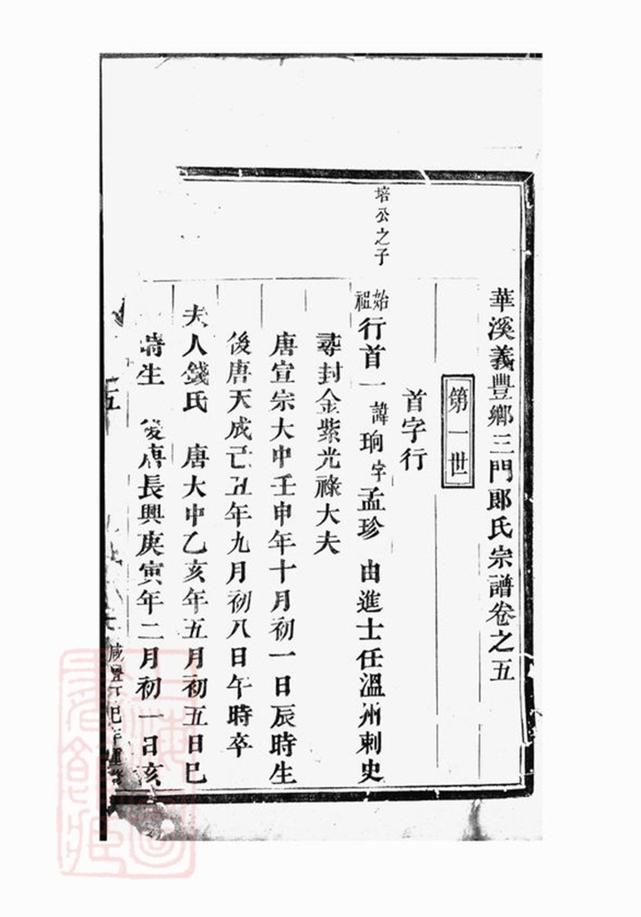 華溪義豐鄉三門郎氏宗譜卷之五
第一世
首字行
培公之子
始祖行首一諱珣字孟珍 由進士任溫州刺史
尋封金紫光祿大夫
唐宣宗大中壬申年十月初一日辰時生
後唐天成己丑年九月初八日午時卒
夫人錢氏 唐大中乙亥年五月初五日巳
時生 後唐長興庚寅年二月初一日亥
五